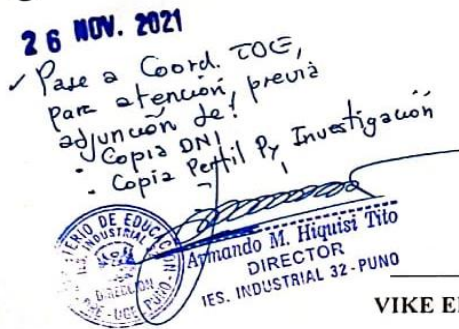 26 NOV. 2021
✓ Pase a Coord. TOE,
para atención, previa
adjunción de:
- Copia DNI
- Copia Perfil Py Investigación
Armando M. Hiquisi Tito
DIRECTOR
IES. INDUSTRIAL 32 - PUNO
INDUSTRIAL
DIRECCIÓN
VIKE